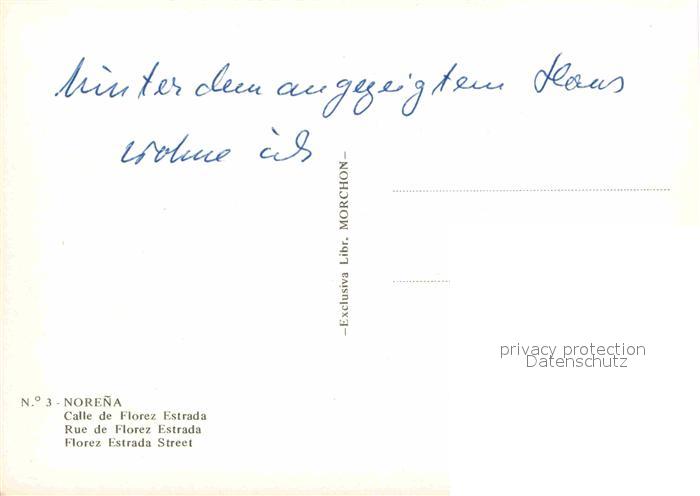 hinter dem angezeigtem Haus
wohne ich
–Exclusiva Libr. MORCHON–
privacy protection
Datenschutz
N.º 3 - NOREÑA
Calle de Florez Estrada
Rue de Florez Estrada
Florez Estrada Street